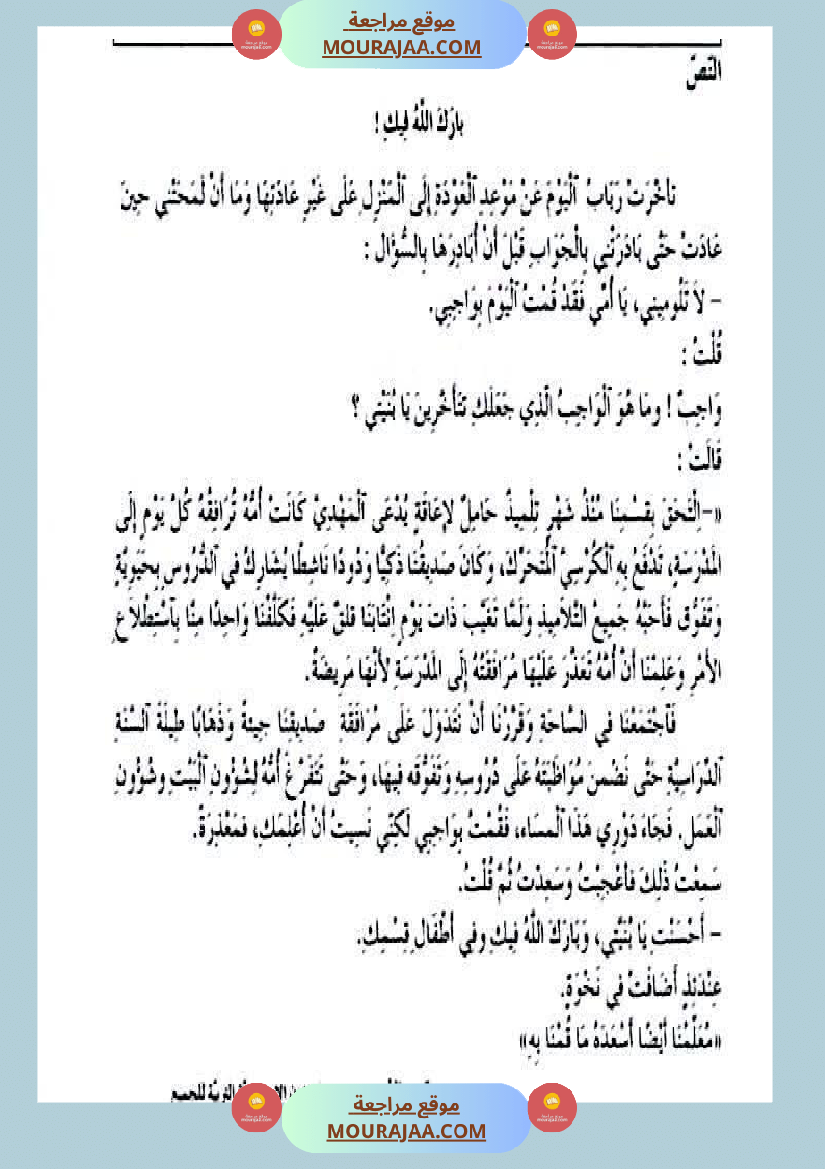 موقع مراجعة
MOURAJAA.COM
النّصّ
بَارَكَ اللَّهُ فِيكِ !
تَأَخَّرَتْ رَبَابُ ٱلْيَوْمَ عَنْ مَوْعِدِ ٱلْعَوْدَةِ إِلَى ٱلْمَنْزِلِ عَلَى غَيْرِ عَادَتِهَا وَمَا أَنْ لَمَحَتْنِي حِينَ
عَادَتْ حَتَّى بَادَرَتْنِي بِالْجَوَابِ قَبْلَ أَنْ أُبَادِرَهَا بِالسُّؤَالِ :
– لَا تَلُومِينِي، يَا أُمِّي فَقَدْ قُمْتُ ٱلْيَوْمَ بِوَاجِبِي.
قُلْتُ :
وَاجِبٌ ! ومَا هُوَ ٱلْوَاجِبُ الَّذِي جَعَلَكِ تَتَأَخَّرِينَ يَا بُنَيَّتِي ؟
قَالَتْ :
«–اِلْتَحَقَ بِقِسْمِنَا مُنْذُ شَهْرٍ تِلْمِيذٌ حَامِلٌ لإِعَاقَةٍ يُدْعَى ٱلْمَهْدِيّ كَانَتْ أُمُّهُ تُرَافِقُهُ كُلَّ يَوْمٍ إِلَى
المَدْرَسَةِ، تَدْفَعُ بِهِ ٱلْكُرْسِيَّ ٱلْمُتَحَرِّكَ، وَكَانَ صَدِيقُنَا ذَكِيًّا وَدُودًا نَاشِطًا يُشَارِكُ فِي ٱلدُّرُوسِ بِحَيَوِيَّةٍ
وَتَفَوُّقٍ فَأَحَبَّهُ جَمِيعُ التَّلاَمِيذِ وَلَمَّا تَغَيَّبَ ذَاتَ يَوْمٍ اِنْتَابَنَا قَلَقٌ عَلَيْهِ فَكَلَّفْنَا وَاحِدًا مِنَّا بِٱسْتِطْلاَعِ
الأَمْرِ وَعَلِمْنَا أَنَّ أُمَّهُ تَعَذَّرَ عَلَيْهَا مُرَافَقَتُهُ إِلَى المَدْرَسَةِ لأَنَّهَا مَرِيضَةٌ.
فَٱجْتَمَعْنَا فِي السَّاحَةِ وَقَرَّرْنَا أَنْ نَتَدَاوَلَ عَلَى مُرَافَقَةِ صَدِيقِنَا جِيئَةً وَذَهَابًا طِيلَةَ ٱلسَّنَةِ
ٱلدِّرَاسِيَّةِ حَتَّى نَضْمَنَ مُوَاظَبَتَهُ عَلَى دُرُوسِهِ وَتَفَوُّقَه فِيهَا، وَحَتَّى تَتَفَرَّغَ أُمُّهُ لِشُؤُونِ ٱلْبَيْتِ وشُؤُونِ
ٱلْعَمَلِ. فَجَاءَ دَوْرِي هَذَا ٱلْمسَاءَ، فَقُمْتُ بِوَاجِبِي لَكِنِّي نَسِيتُ أَنْ أُعْلِمَكِ، فَمَعْذِرَةً.
سَمِعْتُ ذَلِكَ فَأُعْجِبْتُ وَسَعِدْتُ ثُمَّ قُلْتُ.
– أَحْسَنْتِ يَا بُنَيَّتِي، وَبَارَكَ اللَّهُ فِيكِ وفِي أَطْفَالِ قِسْمِكِ.
عِنْدَئِذٍ أَضَافَتْ فِي نَخْوَةٍ.
«مُعَلِّمُنَا أَيْضًا أَسْعَدَهُ مَا قُمْنَا بِهِ»
التربيّة للجميع
موقع مراجعة
MOURAJAA.COM